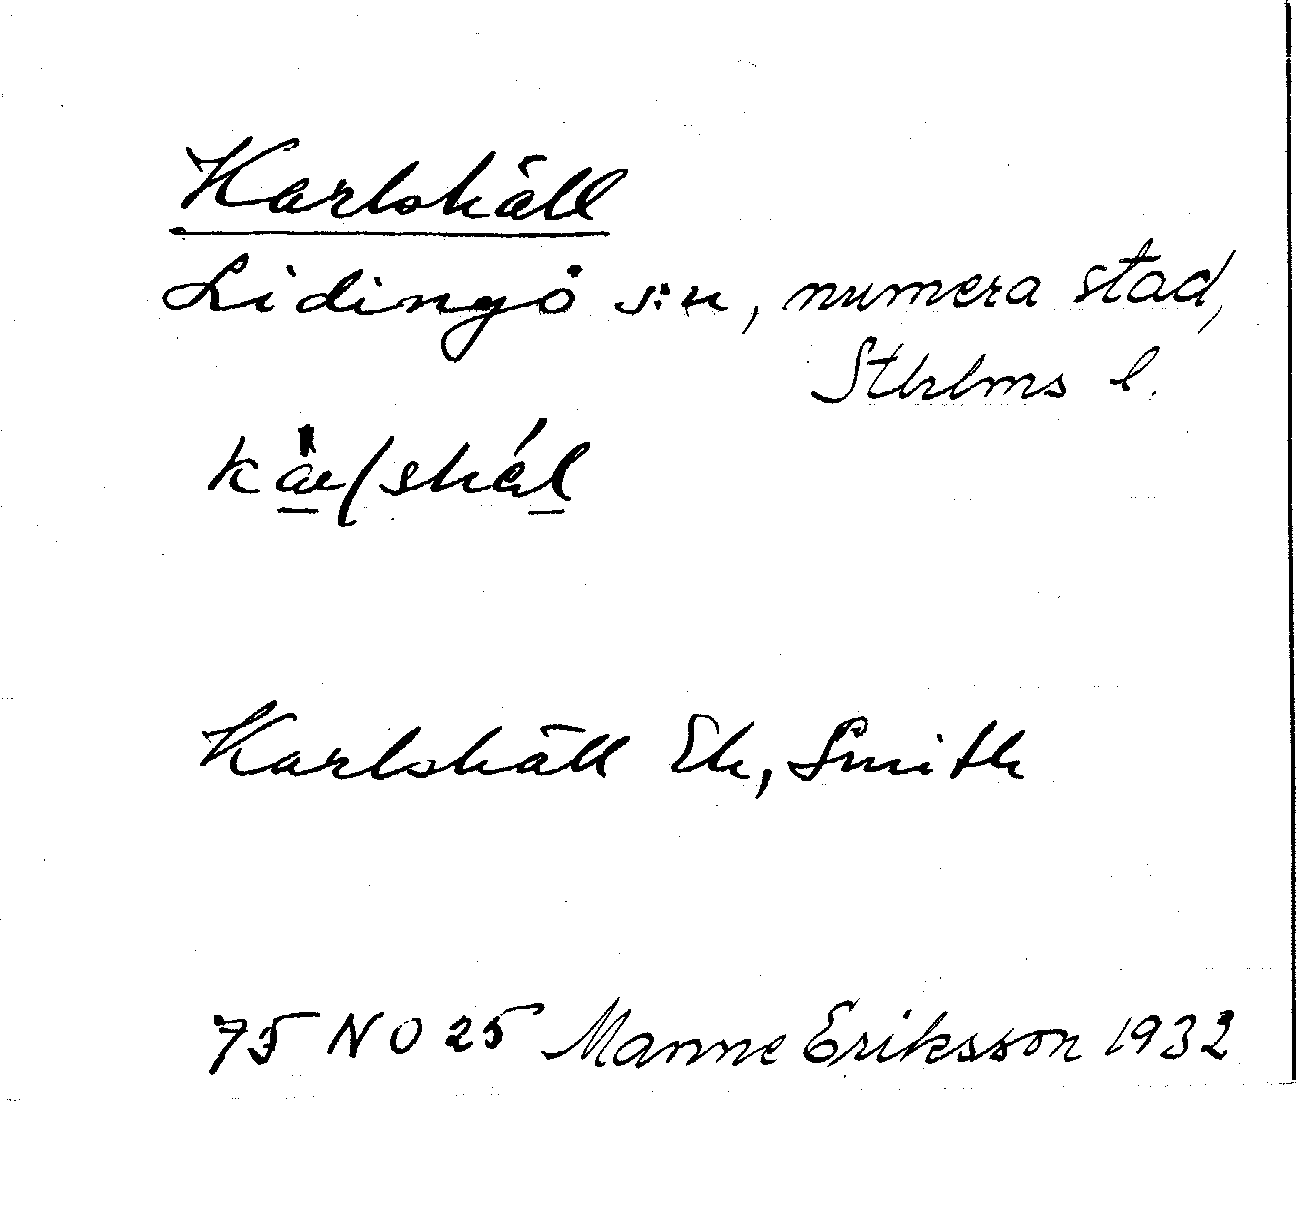 Karlshäll
Lidingö s:n, numera stad,
Sthlms l.
Karlshäll Ek, Smith
75 NO 25 Manne Eriksson 1932